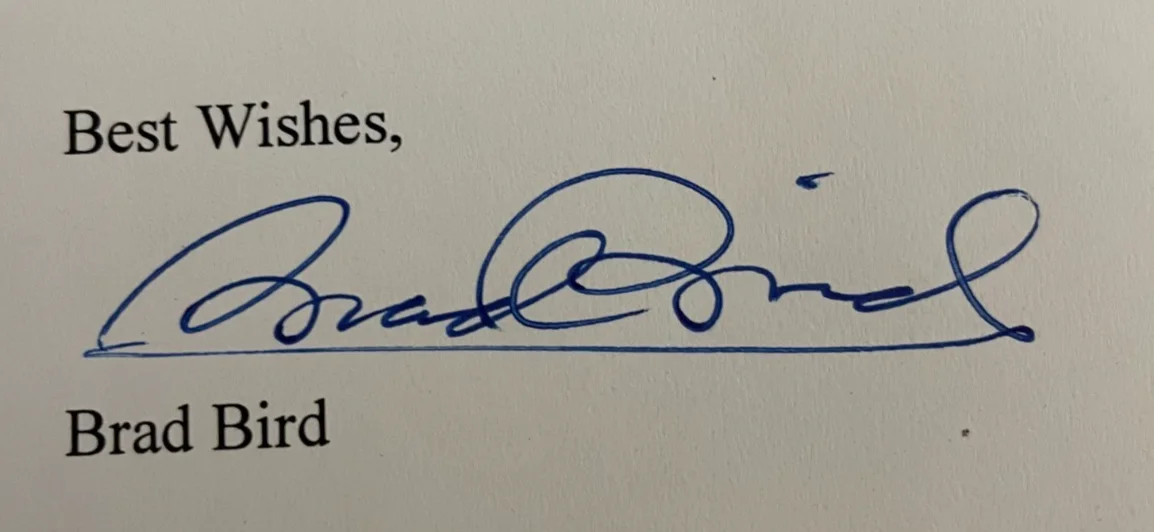 Best Wishes,
Brad Bird
Brad Bird